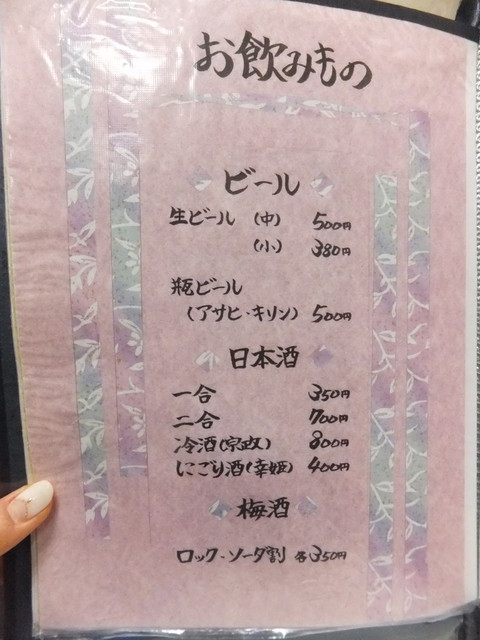 お飲みもの
ビール
生ビール (中) 500円
(小) 380円
瓶ビール
(アサヒ・キリン) 500円
日本酒
一合 350円
二合 700円
冷酒(宗政) 800円
にごり酒(幸姫) 400円
梅酒
ロック・ソーダ割 各350円